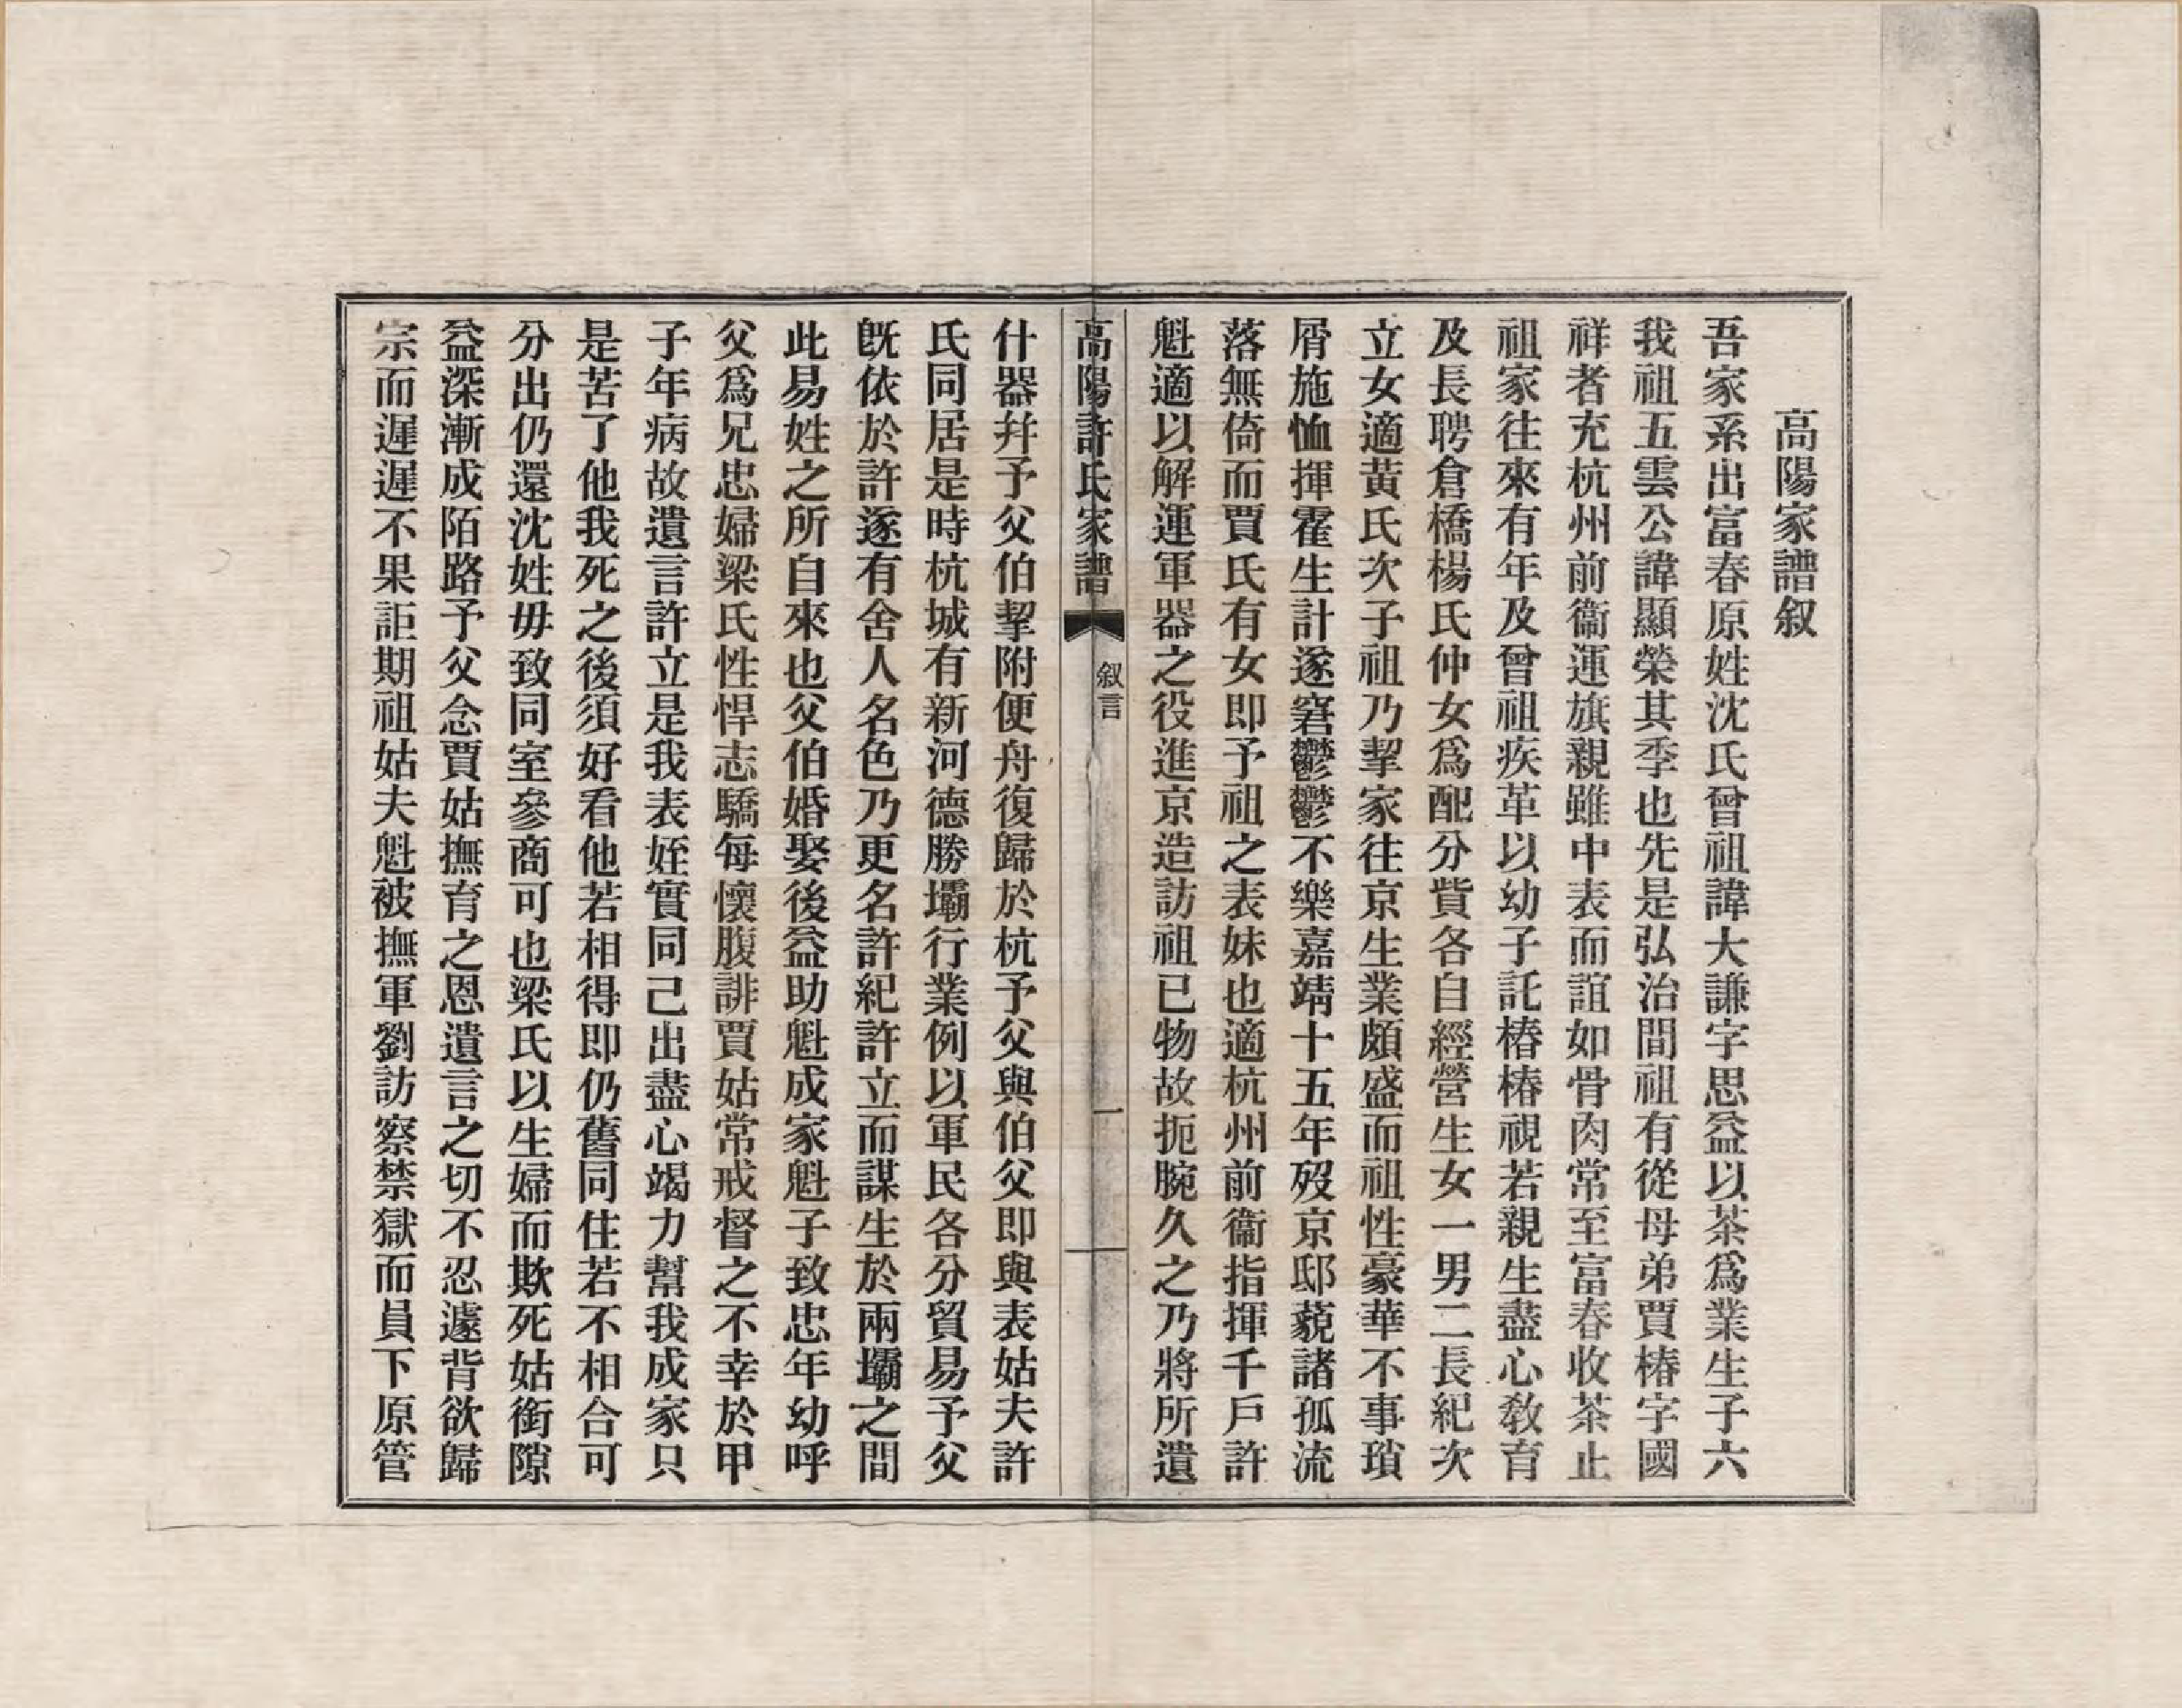 高陽家譜叙
吾家系出富春原姓沈氏曾祖諱大謙字思益以茶爲業生子六
我祖五雲公諱顯榮其季也先是弘治間祖有從母弟賈椿字國
祥者充杭州前衞運旗親雖中表而誼如骨肉常至富春收茶止
祖家往來有年及曾祖疾革以幼子託椿椿視若親生盡心敎育
及長聘倉橋楊氏仲女爲配分貲各自經營生女一男二長紀次
立女適黃氏次子祖乃挈家往京生業頗盛而祖性豪華不事瑣
屑施恤揮霍生計遂窘鬱鬱不樂嘉靖十五年歿京邸藐諸孤流
落無倚而賈氏有女即予祖之表妹也適杭州前衞指揮千戶許
魁適以解運軍器之役進京造訪祖已物故扼腕久之乃將所遺
高陽許氏家譜
叙言
一
什器幷予父伯挈附便舟復歸於杭予父與伯父即與表姑夫許
氏同居是時杭城有新河德勝壩行業例以軍民各分貿易予父
旣依於許遂有舍人名色乃更名許紀許立而謀生於兩壩之間
此易姓之所自來也父伯婚娶後益助魁成家魁子致忠年幼呼
父爲兄忠婦梁氏性悍志驕每懷腹誹賈姑常戒督之不幸於甲
子年病故遺言許立是我表姪實同己出盡心竭力幫我成家只
是苦了他我死之後須好看他若相得即仍舊同住若不相合可
分出仍還沈姓毋致同室參商可也梁氏以生婦而欺死姑銜隙
益深漸成陌路予父念賈姑撫育之恩遺言之切不忍遽背欲歸
宗而遲遲不果詎期祖姑夫魁被撫軍劉訪察禁獄而員下原管